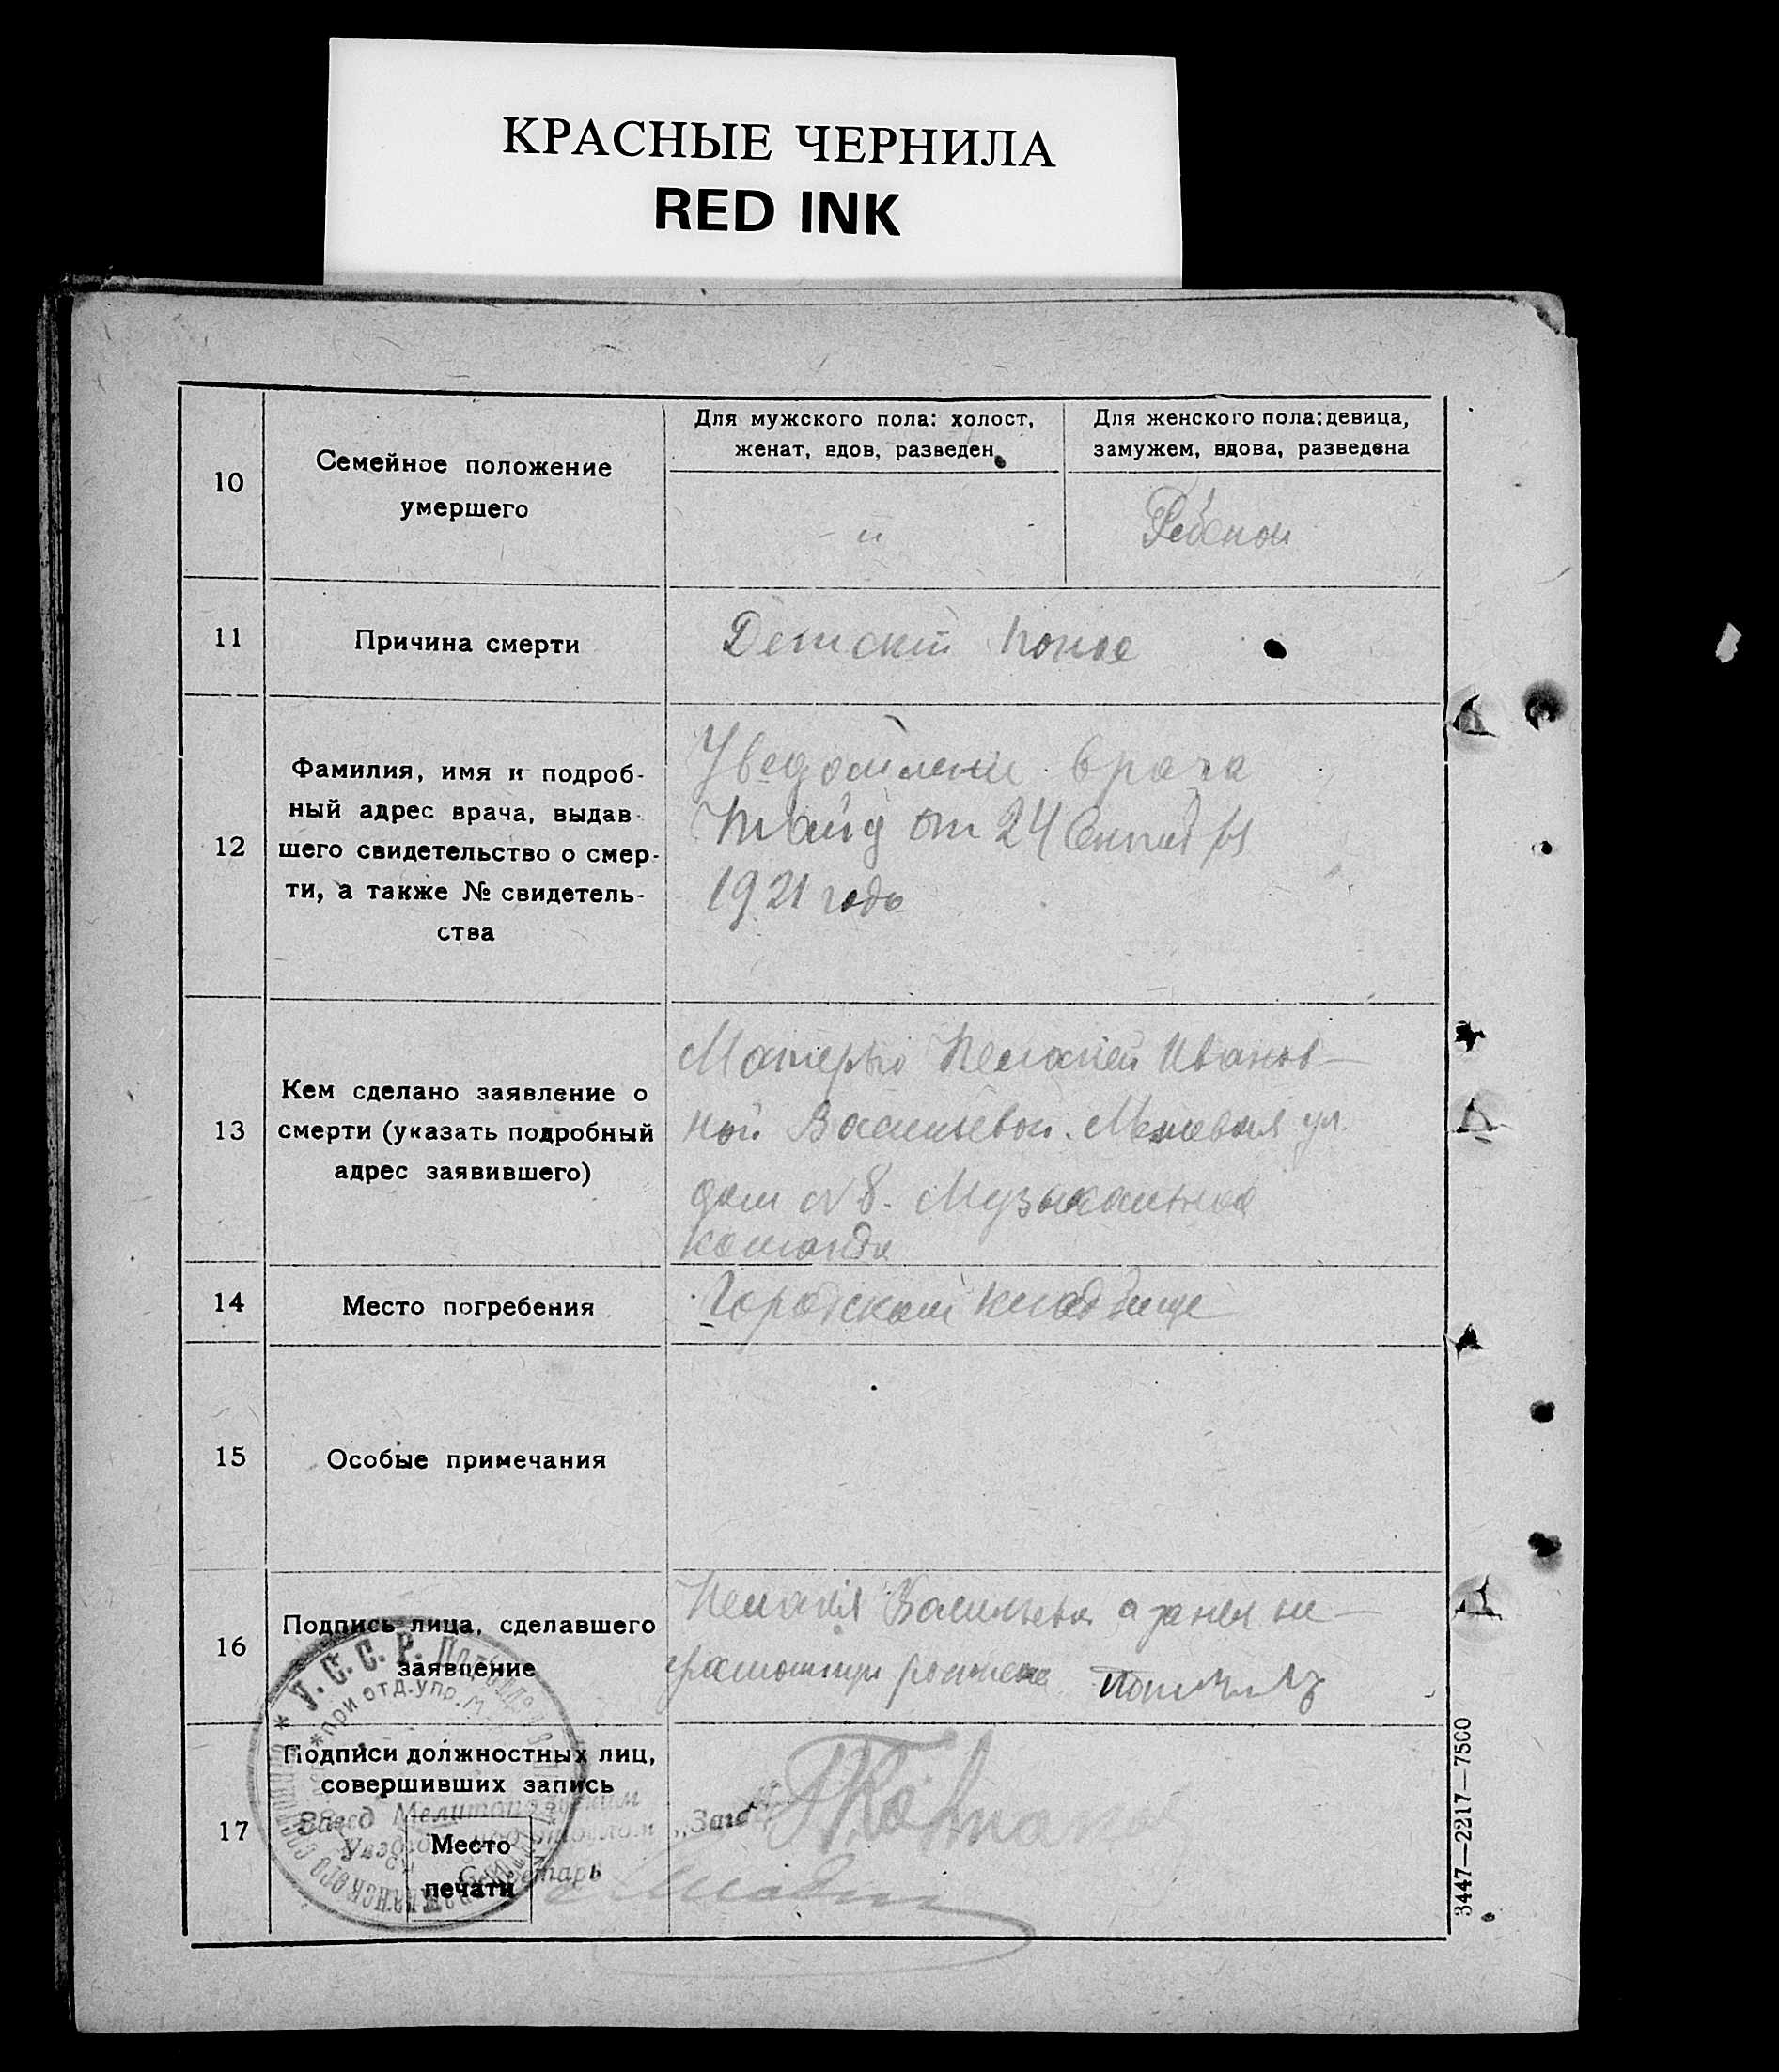 КРАСНЫЕ ЧЕРНИЛА
RED INK
10
Семейное положение
умершего
Для мужского пола: холост,
женат, вдов, разведен
Для женского пола: девица,
замужем, вдова, разведена
- " -
Ребенок
11
Причина смерти
Детский понос
12
Фамилия, имя и подроб-
ный адрес врача, выдав-
шего свидетельство о смер-
ти, а также № свидетель-
ства
Уведомление врача
от 24 Сентября
1921 года
13
Кем сделано заявление о
смерти (указать подробный
адрес заявившего)
Матерью Пелагией Иванов-
ной Васильевой. ул.
дом № 8. Музыкальная
команда
14
Место погребения
Городском кладбище
15
Особые примечания
16
Подпись лица, сделавшего
заявление
Пелагея Васильева а за нея не-
грамотную
17
Подписи должностных лиц,
совершивших запись
Завед Мелитопольским
Уездным
Секретарь
Место
печати
„Загс"
У. С. С. Р.
при отд. упр.
3447—2217—7500